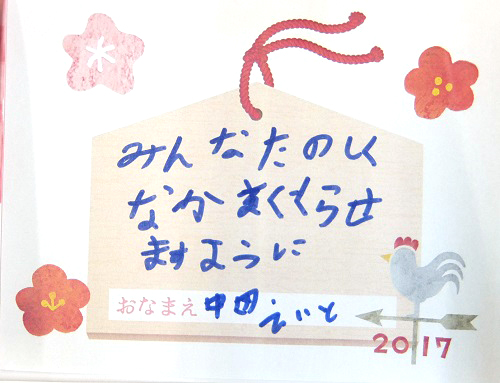 みんなたのしく
なかよくくらせ
ますように
おなまえ 中田えいと
2017